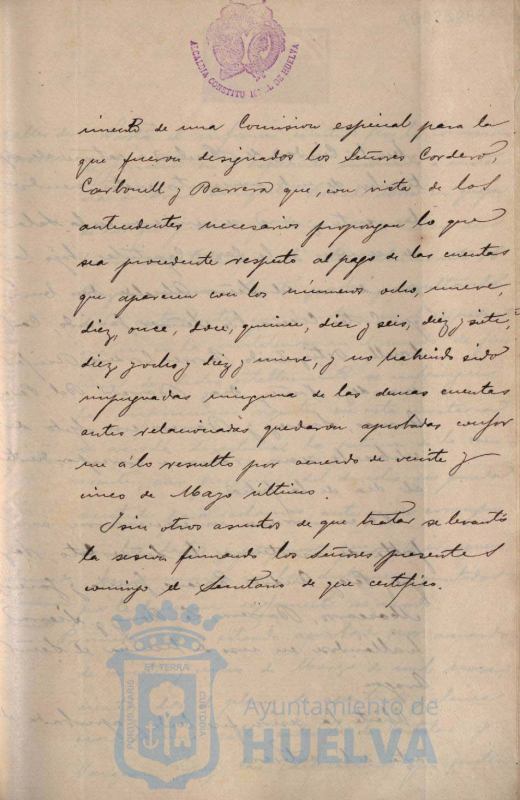 ALCALDIA CONSTITUCIONAL DE HUELVA
imiento de una Comision especial para la
que fueron designados los Señores Cordero,
Carbonell y Barrera que, con vista de los
antecedentes necesarios propongan lo que
sea procedente respeto al pago de las cuentas
que aparecen con los números ocho, nueve,
diez, once, doce, quince, diez y seis, diez y siete,
diez y ocho y diez y nueve, y no habiendo sido
impugnadas ninguna de las demas cuentas
antes relacionadas quedaron aprobadas confor
me á lo resuelto por acuerdo de veinte y
cinco de Mayo último.
Y sin otros asuntos de que tratar se levantó
la sesion firmando los Señores presentes
conmigo el Secretario de que certifico.
ET TERRA
PORTUS MARIS
CUSTODIA
Ayuntamiento de
HUELVA